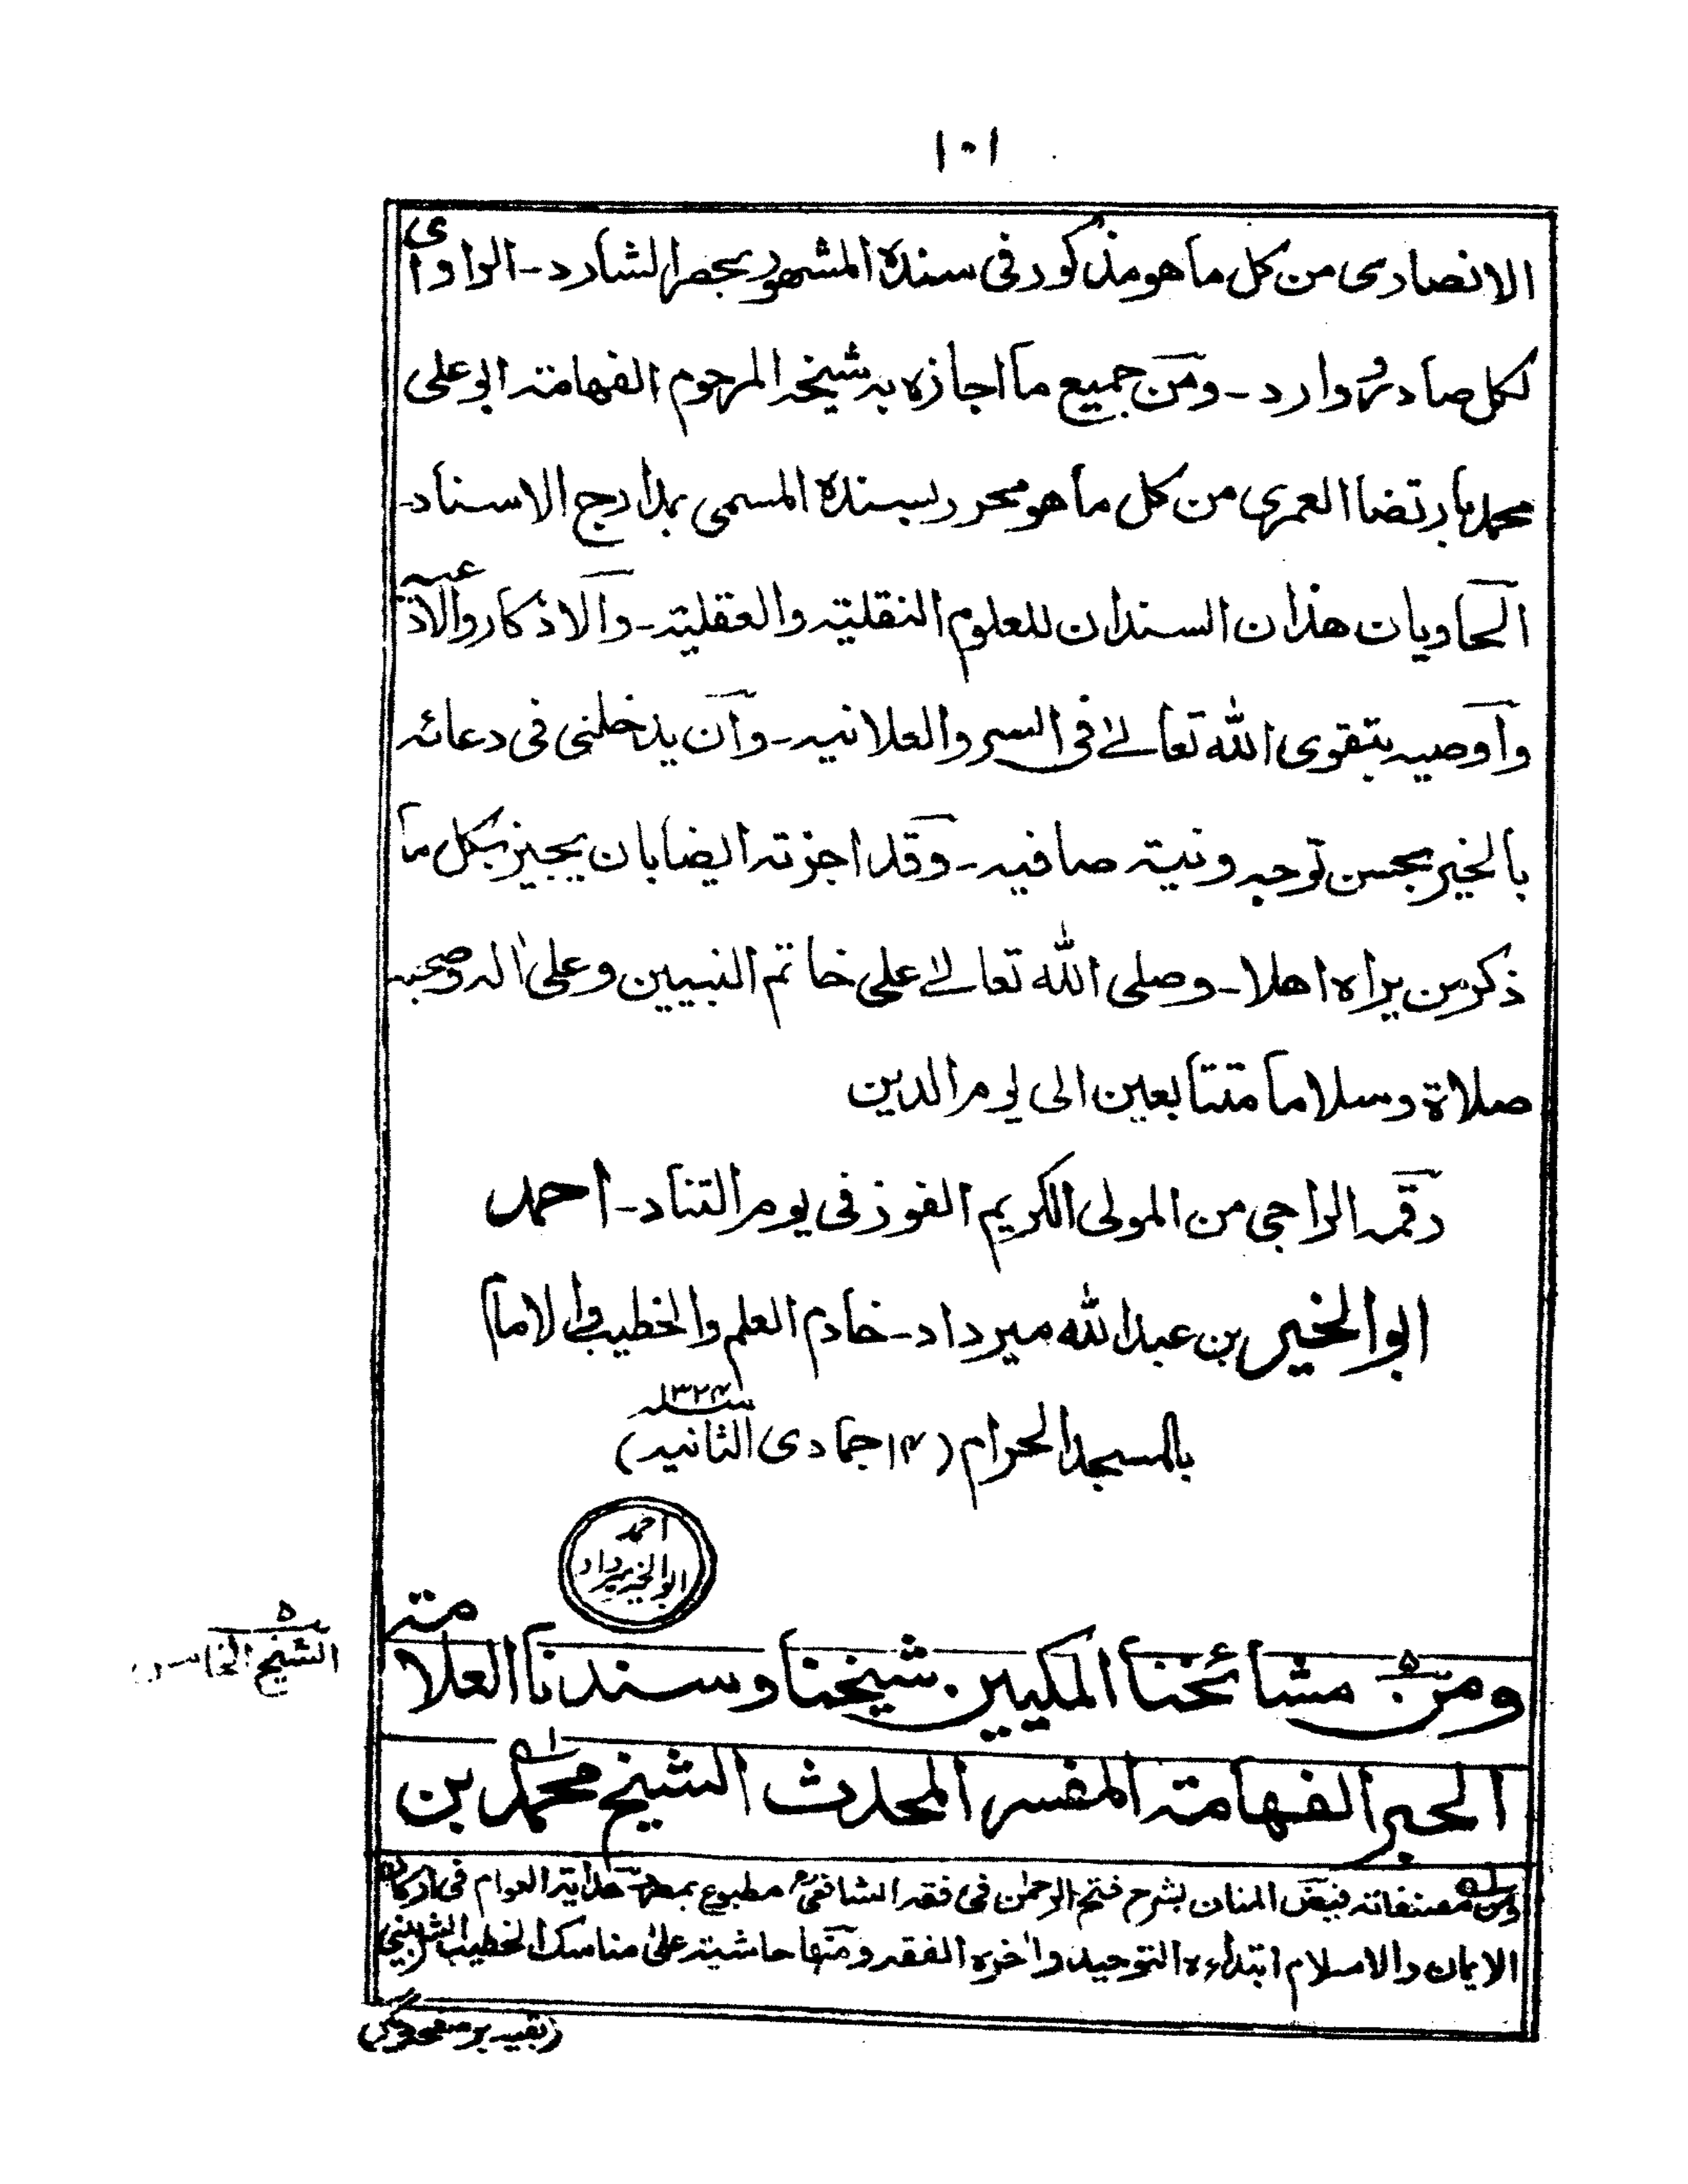 ١٠١
الانصاری من كل ما هو مذكور فی سنده المشهور بحصر الشارد ـ الراوی
لكل صادر و وارد ـ ومن جمیع ما اجازه به شیخه المرحوم الفهامة ابو علی
محمد بارتضا العمری من كل ما هو محرر بسنده المسمی بمدارج الاسناد ـ
الحاویان هذان السندان للعلوم النقلیة والعقلیة ـ والاذكار والادعیه
واوصیه بتقوی الله تعالے فی السر والعلانیه ـ وان یدخلنی فی دعائه
بالخیر بحسن توجه ونیة صافیه ـ وقد اجزته ایضا بان یجیز بكل ما
ذكر من یراه اهلا ـ وصلی الله تعالے علی خاتم النبیین وعلی اٰله وصحبه
صلاة وسلاما متتابعین الی یوم الدین
رقمه الراجی من المولی الكریم الفوز فی یوم التناد ـ احمد
ابوالخیر بن عبدالله میرداد ـ خادم العلم والخطیب والامام
بالمسجد الحرام (١۴ جمادی الثانیه) سنه ١٣٢۴
احمد
ابوالخیر میرداد
۵
الشیخ الخامس
ومن مشائخنا المكیین شیخنا وسندنا العلامة
الحبر الفهامة المفسر المحدث الشیخ محمد بن
ومن مصنفاته فیض المنان بشرح فتح الرحمٰن فی فقه الشافعی مطبوع بمصر هدایة العوام فی اركان
الایمان والاسلام ابتداءه التوحید واٰخره الفقه ومنها حاشیة علیٰ مناسك الخطیب الشربینی
(بقیه بر صفحه دیگر)